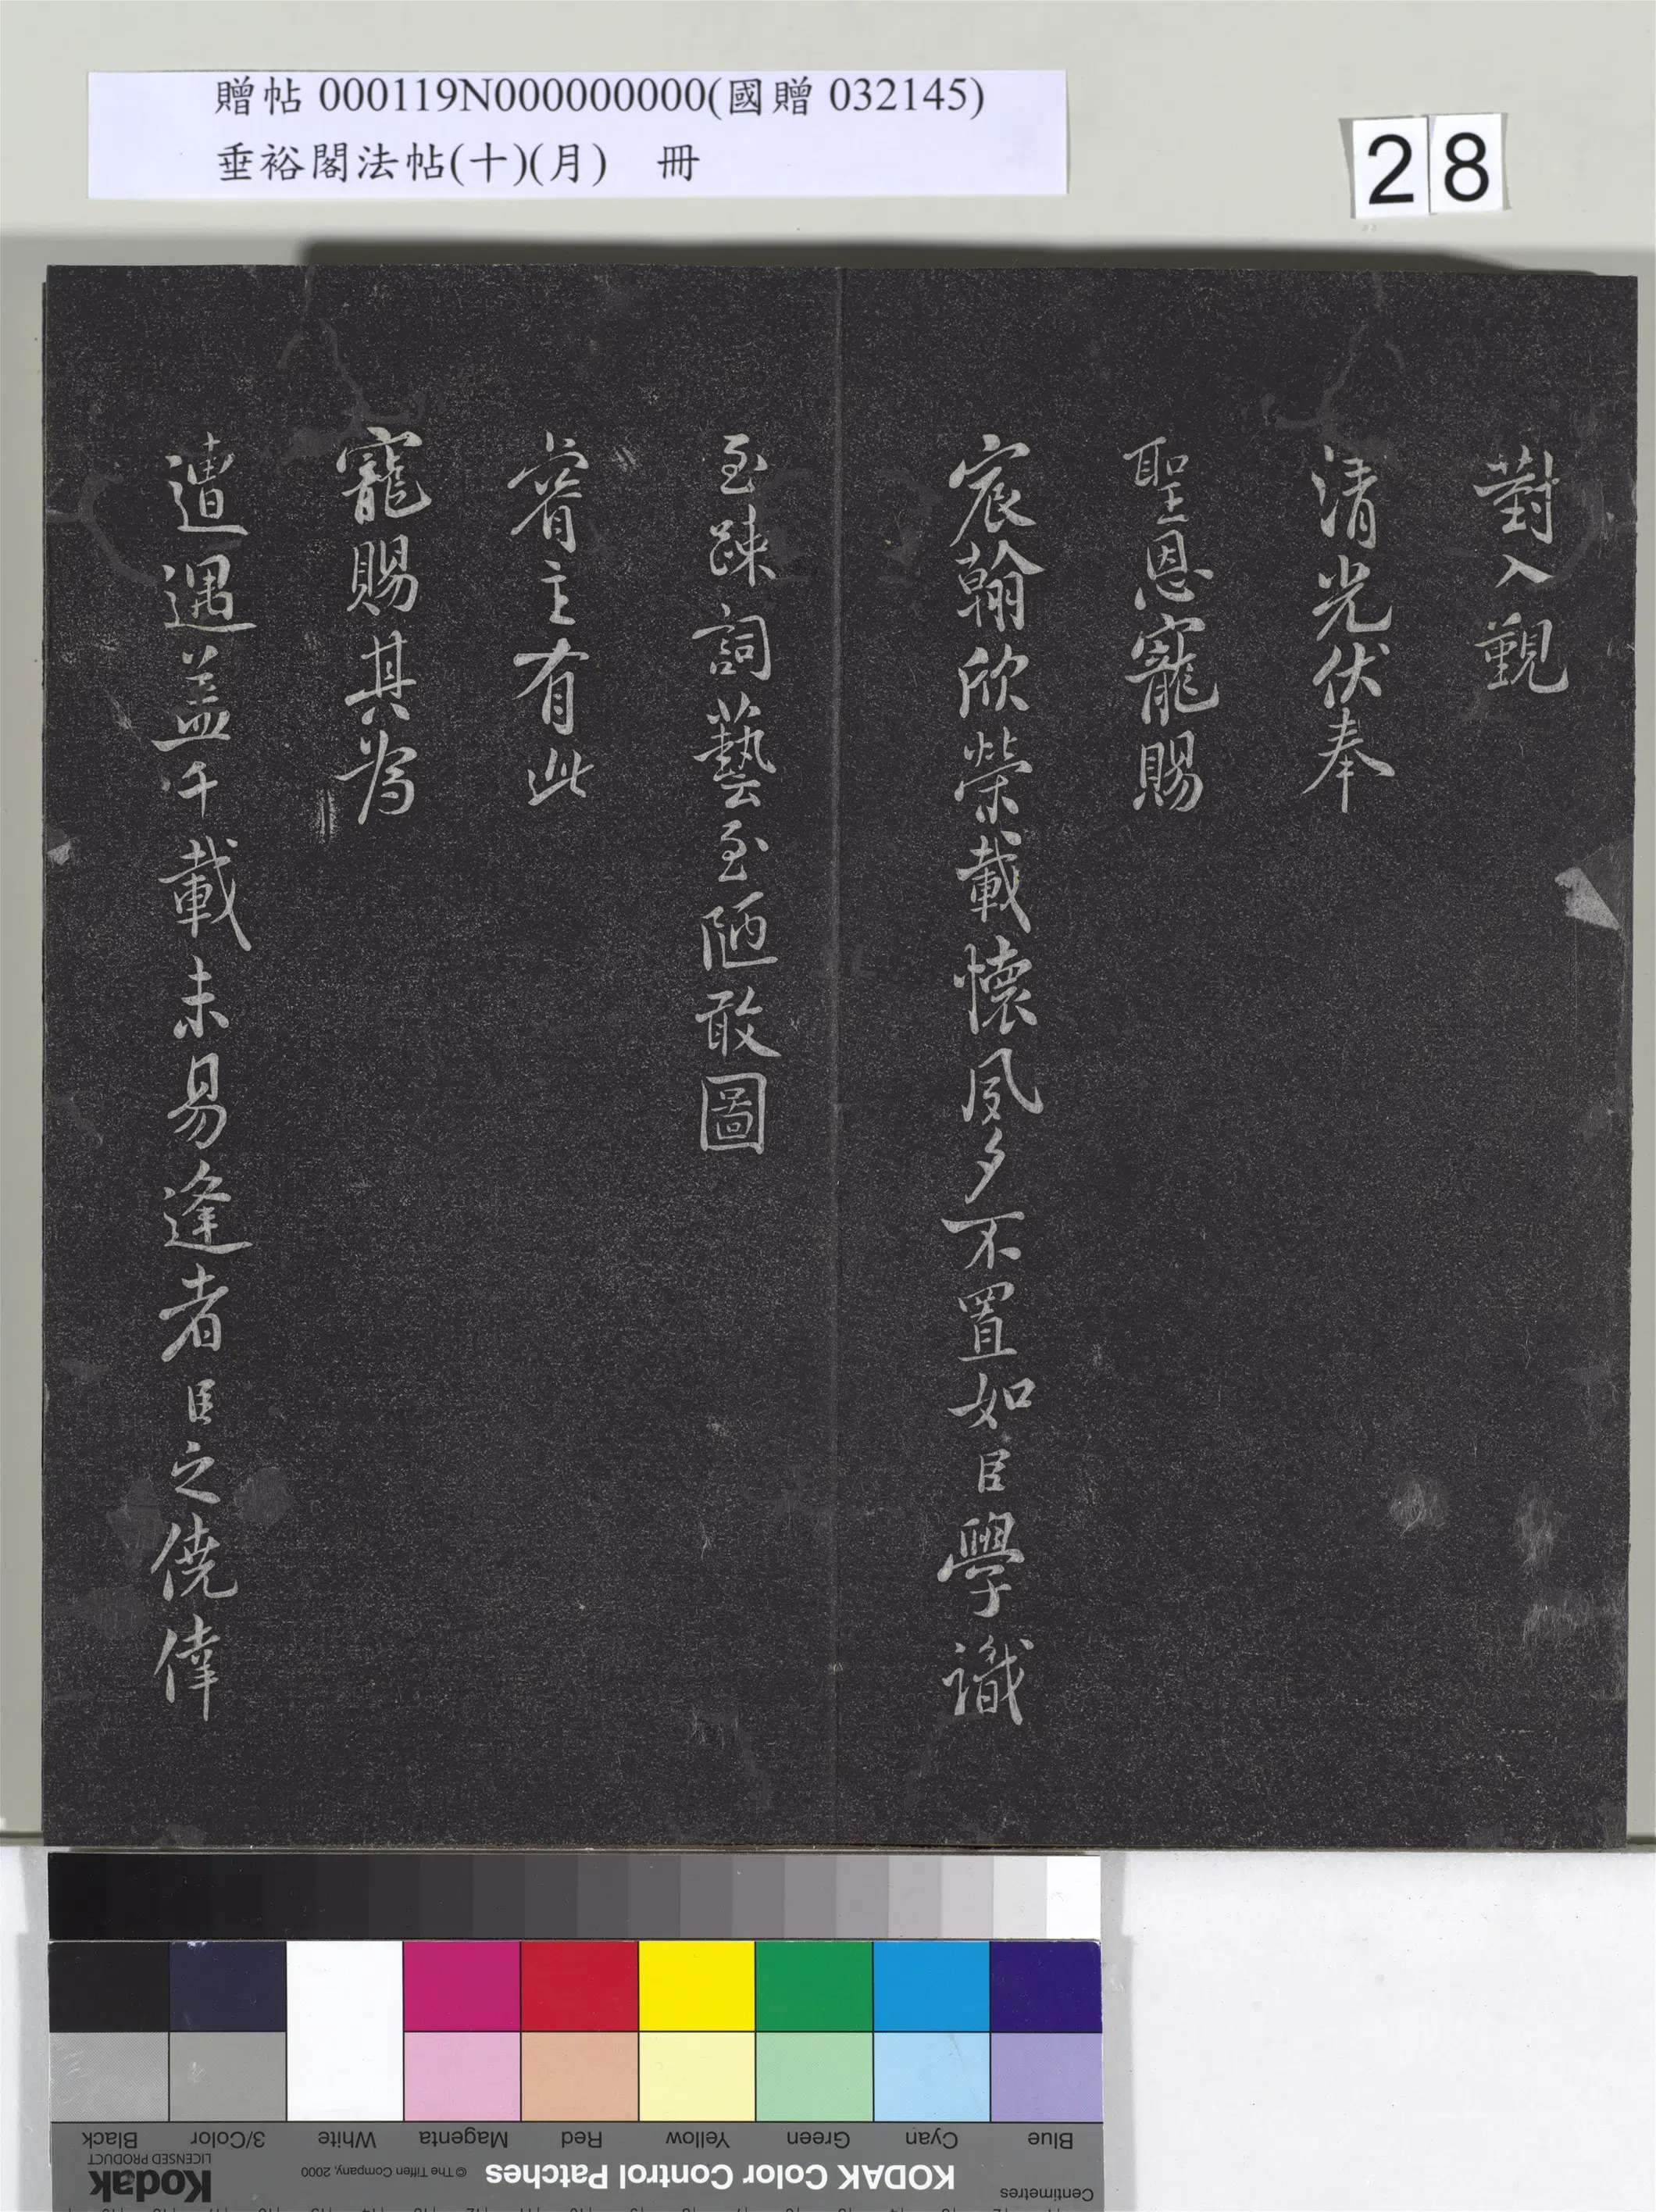 贈帖 000119N000000000(國贈 032145)
垂裕閣法帖(十)(月) 冊
28
對入覲
清光伏奉
聖恩寵賜
宸翰欣榮載懷夙夕不置如臣學識
至疎詞藝至陋敢圖
睿主有此
寵賜其為
遭遇盖千載未易逢者臣之僥倖
Blue Cyan Green Yellow Red Magenta White 3/Color Black
KODAK Color Control Patches © The Tiffen Company, 2000 Kodak
LICENSED PRODUCT
Centimetres